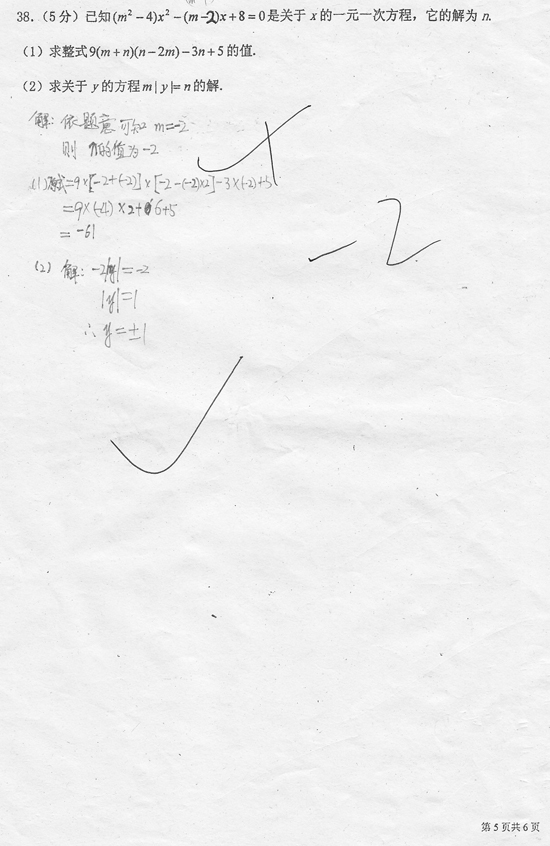 38.（5 分）已知(m²－4)x²－(m－2)x＋8＝0是关于 x 的一元一次方程，它的解为 n.
（1）求整式 9(m＋n)(n－2m)－3n＋5 的值.
（2）求关于 y 的方程 m|y|＝n 的解.
解: 依题意可知 m=-2
则 n的值为-2
(1)原式=9×[-2+(-2)]×[-2-(-2)×2]-3×(-2)+5
=9×(-4)×2+6+5
= -61
-2
(2) 解: -2|y|=-2
|y|=1
∴ y=±1
第 5 页共 6 页